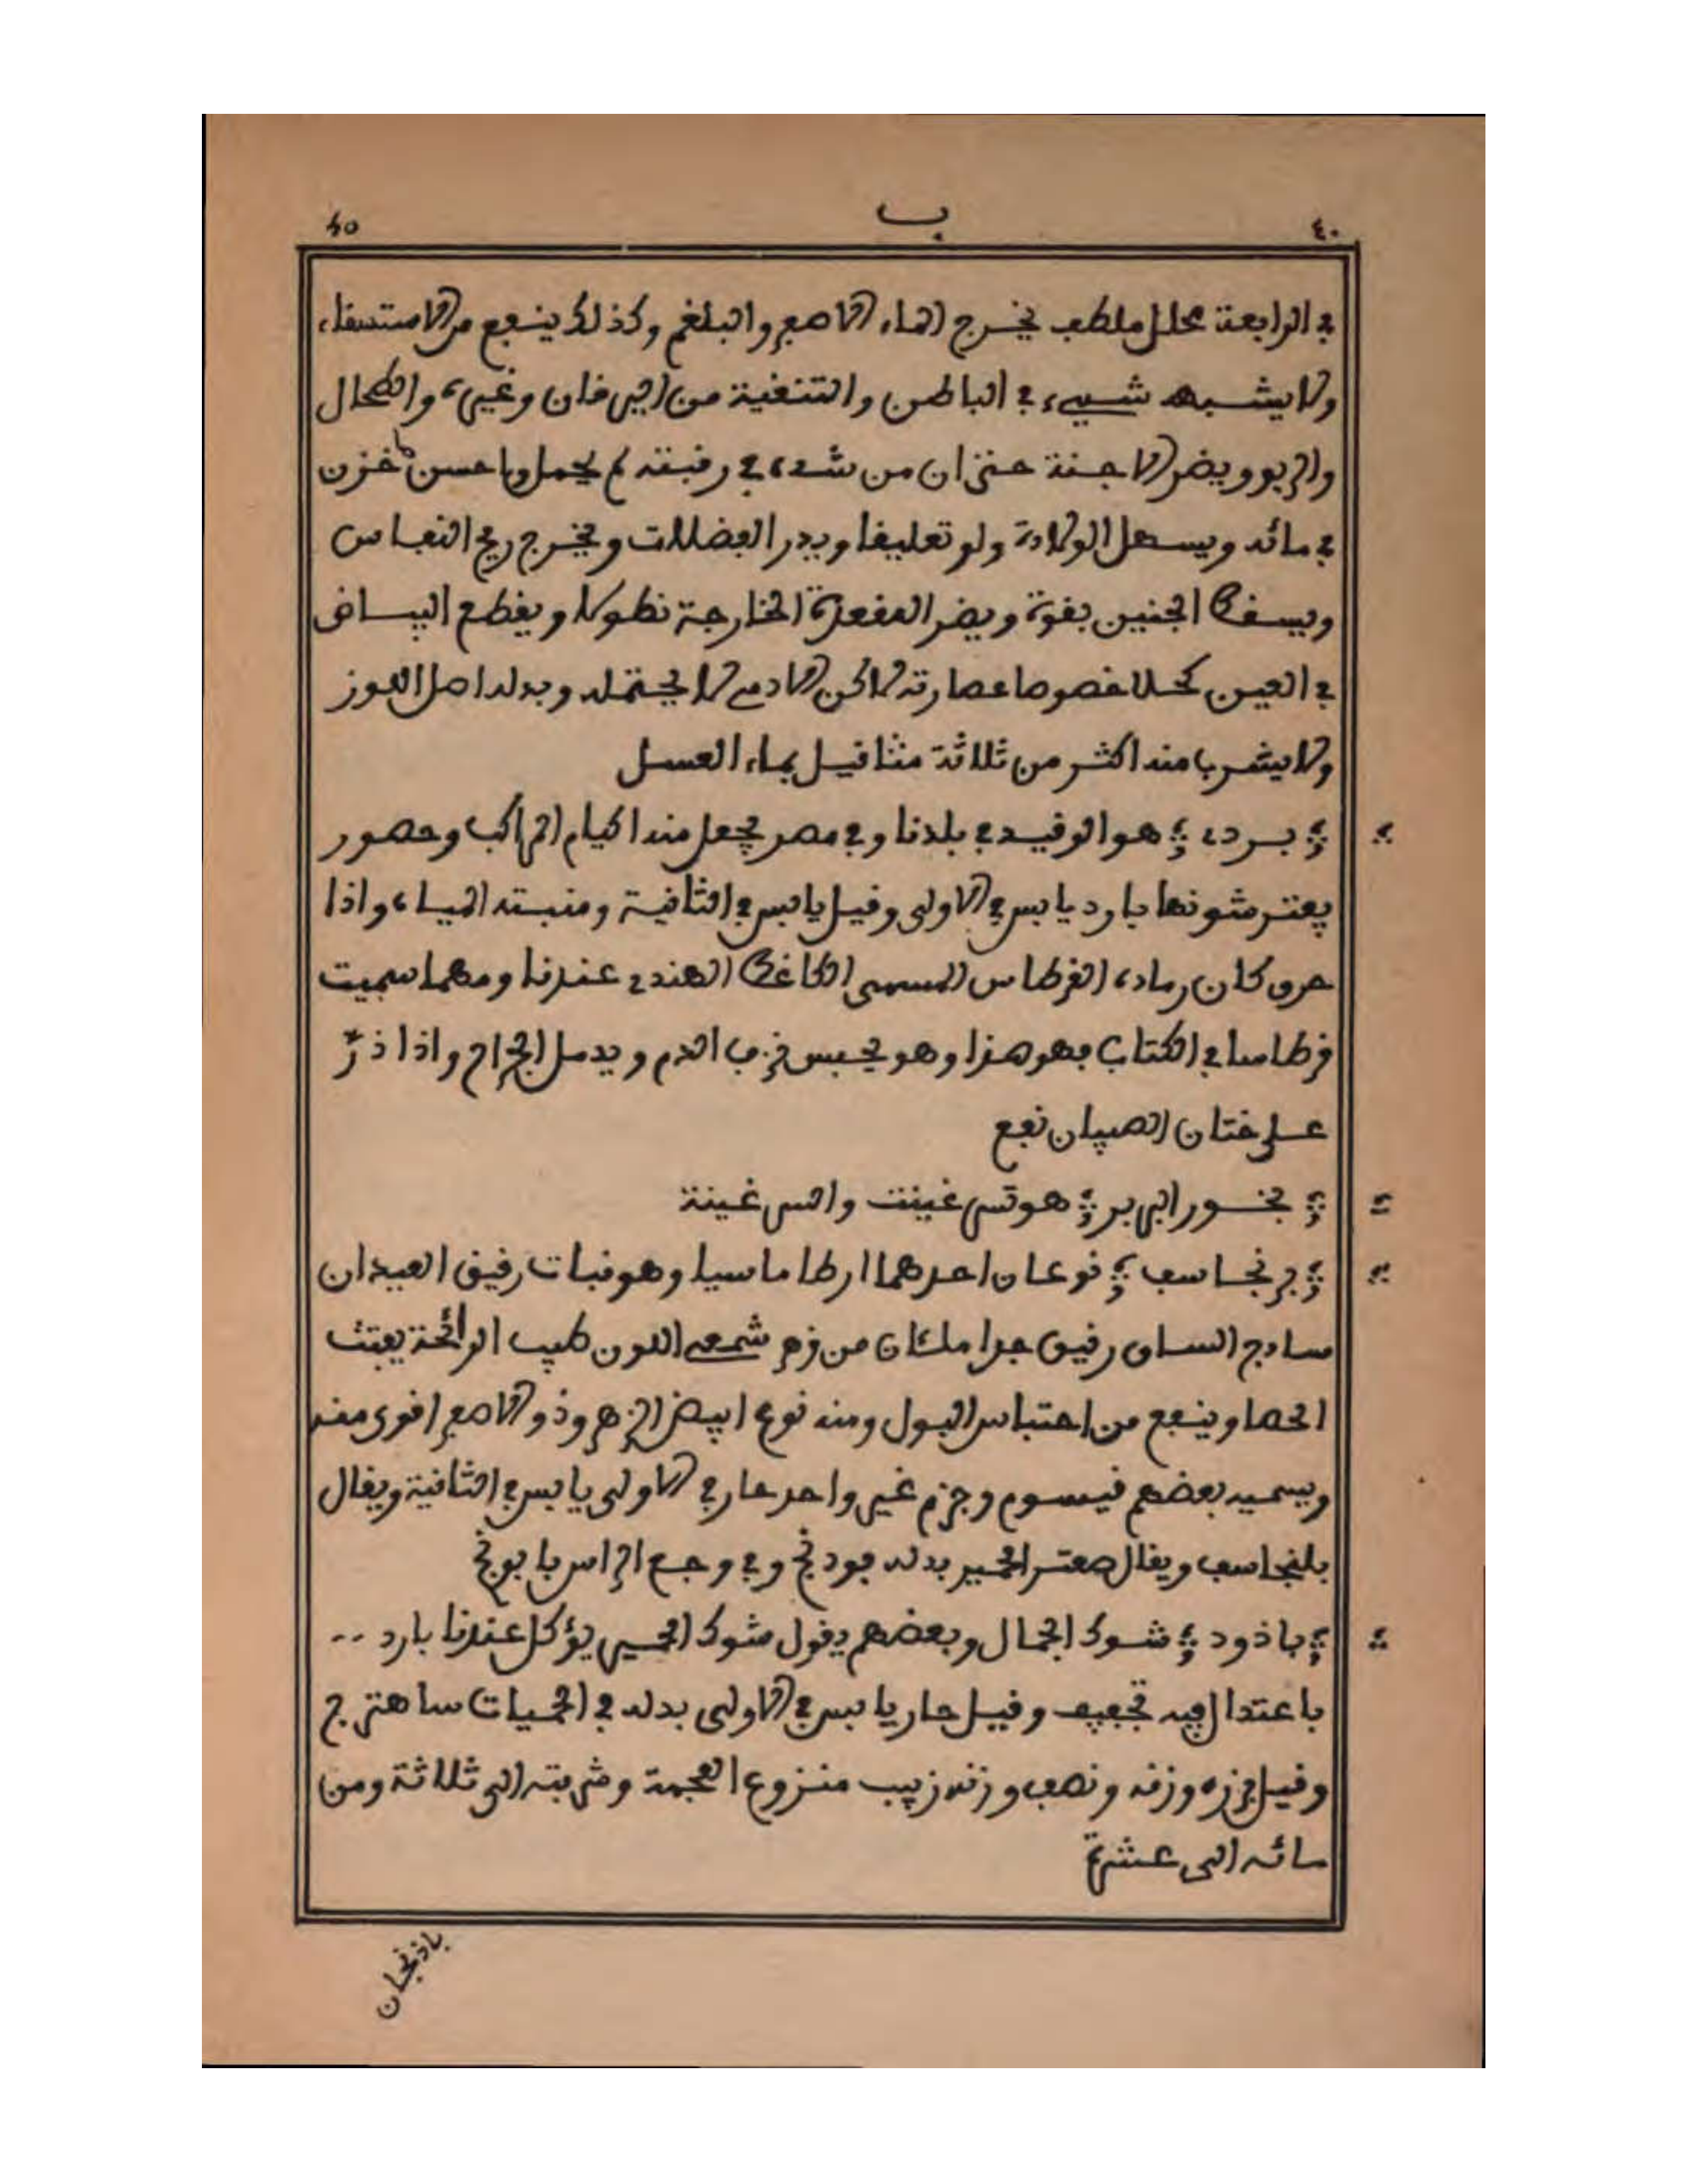 ٤٠ ب ٤٥
في الرابعة محلل ملطف يخرج الماء الاصفر والبلغم وكذلك ينفع من الاستسقاء
ولا يشبهه شيء في الباطن والتنقية من اليرقان وغيره والطحال
والربو ويضر الاجنة حتى ان من شده في رقبته لم يحمل وما حسن خزن
في مائه ويسهل الولادة ولو تعليقا ويدر الفضلات ويخرج ريح النفاس
ويسقط الجنين بقوة ويضر المقعدة الخارجة نطولا ويقطع البياض
في العين كحلا خصوصا عصارته لاكن الادمي لا يحتمله وبدله اصل اللوز
ولا يشرب منه اكثر من ثلاثة مثاقيل بماء العسل
بردي هو الوقيد في بلدنا وفي مصر يجعل منه اكيام المراكب وحصور
يفترشونها بارد يابس في الاولى وقيل يابس في الثانية ومنبته المياه واذا
حرق كان رماده القرطاس المسمى الكاغظ الهندي عندنا ومهما سميت
قرطاسا في الكتاب فهو هذا وهو يحبس نزف الدم ويدمل الجراح واذا ذرّ
على ختان الصبيان نفع
بخور البربر هو تسرغينت والسرغينة
برنجاسف نوعان احدهما ارطاماسيا وهو نبات رقيق العيدان
سادج الساق رقيق جدا ملئان من زهر شمعي اللون طيب الرائحة يفتت
الحصا وينفع من احتباس البول ومنه نوع ابيض الزهر وذو الاصفر اقوى منه
ويسميه بعضهم قيسوم وجزم غير واحد حار في الاولى يابس في الثانية ويقال
بلنجاسف ويقال صعتر الحمير بدله فودنج وفي وجع الراس بابونج
باذود شوك الجمال وبعضهم يقول شوك الحمير يؤكل عندنا بارد ..
باعتدال فيه تجفيف وقيل حار يابس في الاولى بدله في الحميات ساهترج
وقيل جزء وزنه ونصف وزنه زبيب منزوع العجمة وشربته الى ثلاثة ومن
مائه الى عشرة
باذنجان